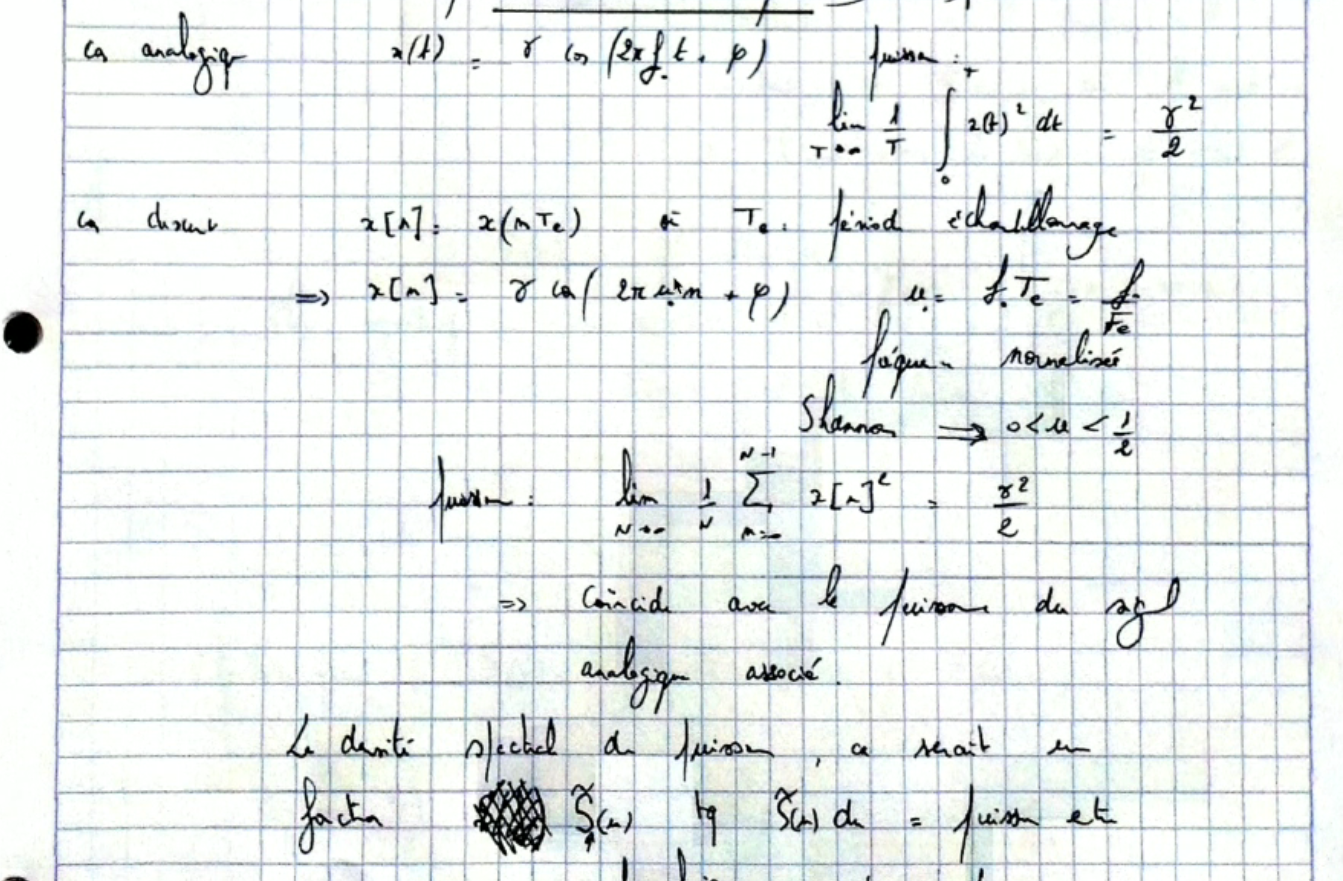 cas analogique x(t) = γ cos (2π f₀ t + φ) puissance :
lim T→∞ 1/T ∫₀ᵀ x(t)² dt = γ²/2
cas discret x[n] = x(nTe) où Te : période échantillonnage
=> x[n] = γ cos( 2π u₀ n + φ) u₀ = f₀ Te = f₀/Fe
fréquence normalisée
Shannon => 0 < u < 1/2
puissance : lim N→∞ 1/N Σ n=0 N-1 x[n]² = γ²/2
=> coïncide avec la puissance du signal
analogique associé.
La densité spectral de puissance, ce serait une
fonction S̃(u) tq S̃(u) du = puissance etc